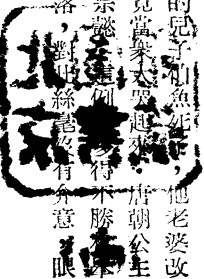 的兒子仙魚死，他老婆改
竟當衆大哭起來。唐朝公主
例多得不勝
落，對此絲毫沒有介意眼